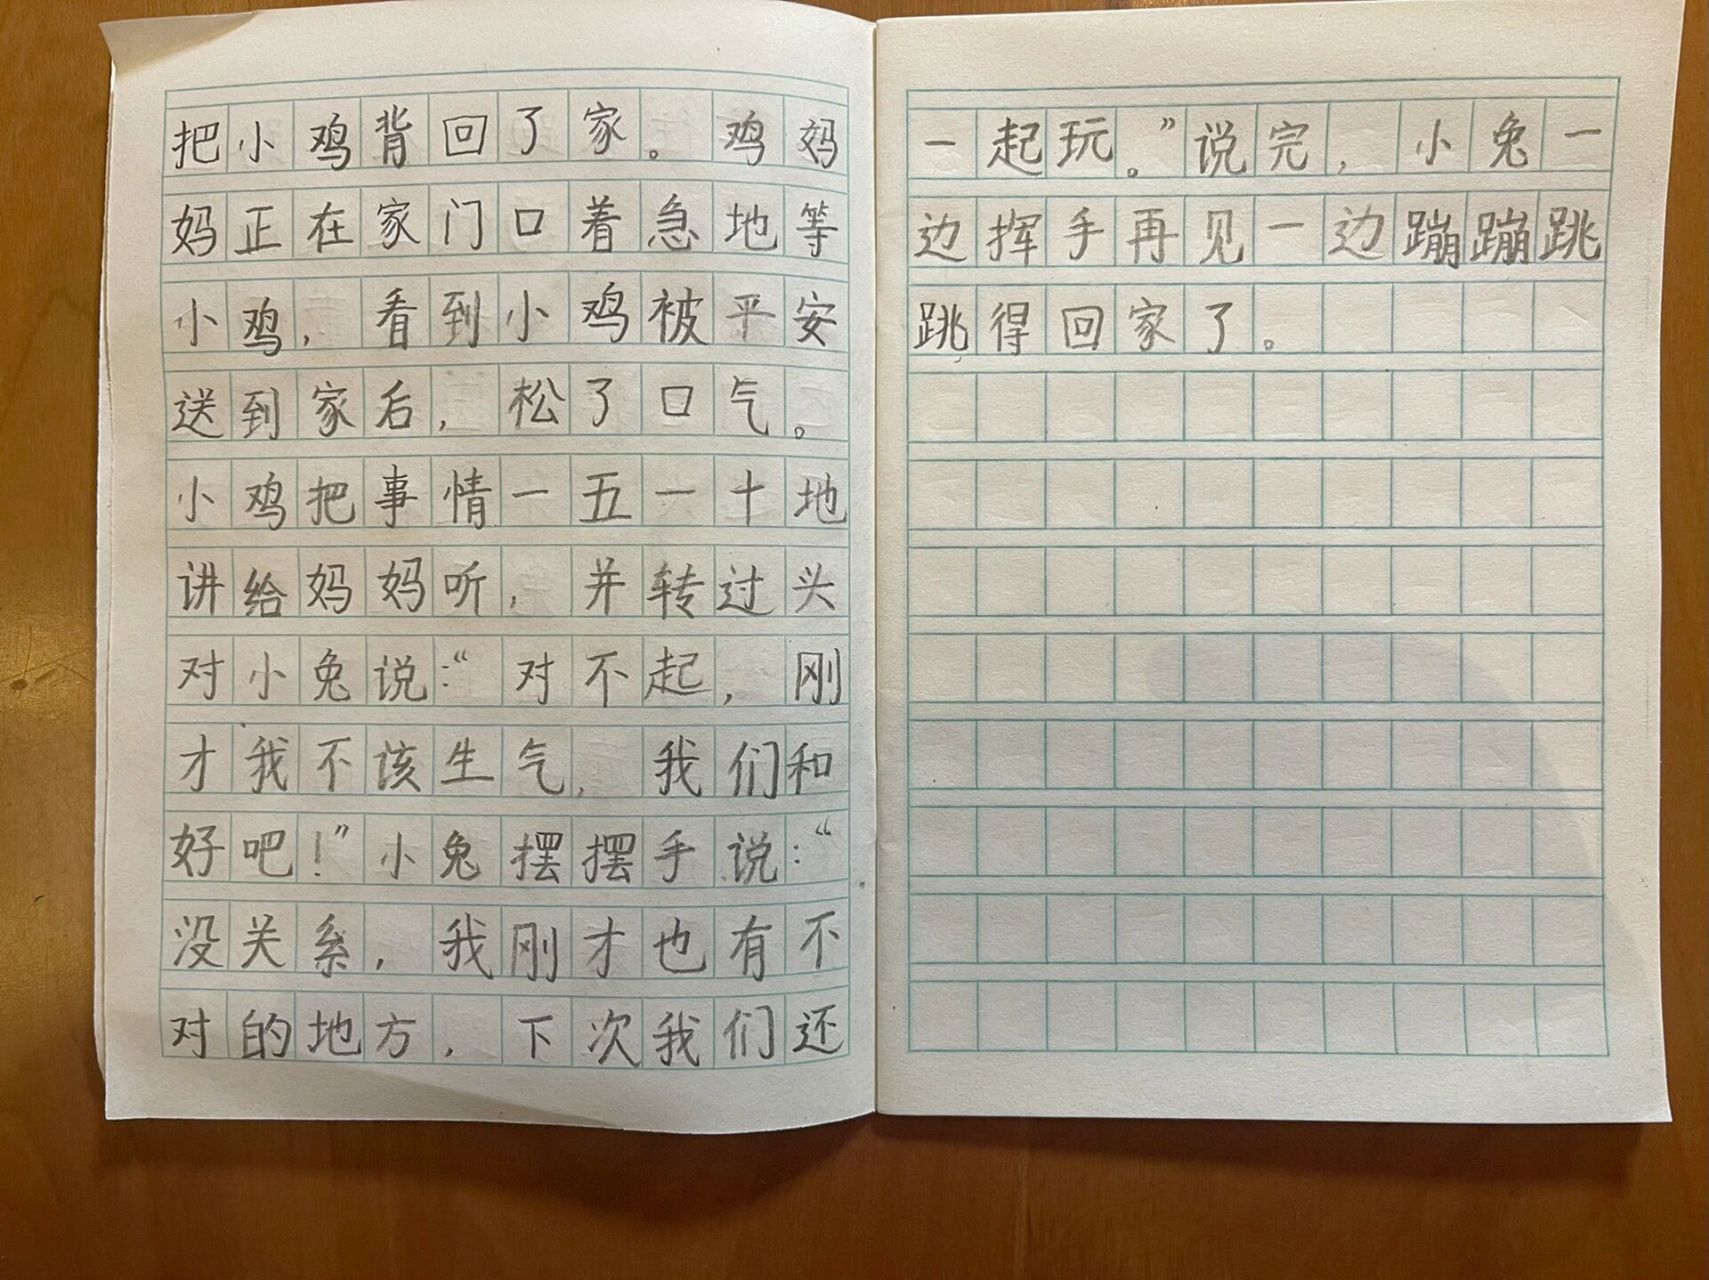 把小鸡背回了家。鸡妈
妈正在家门口着急地等
小鸡，看到小鸡被平安
送到家后，松了口气。
小鸡把事情一五一十地
讲给妈妈听，并转过头
对小兔说：“对不起，刚
才我不该生气，我们和
好吧！”小兔摆摆手说：“
没关系，我刚才也有不
对的地方，下次我们还
一起玩。”说完，小兔一
边挥手再见一边蹦蹦跳
跳得回家了。